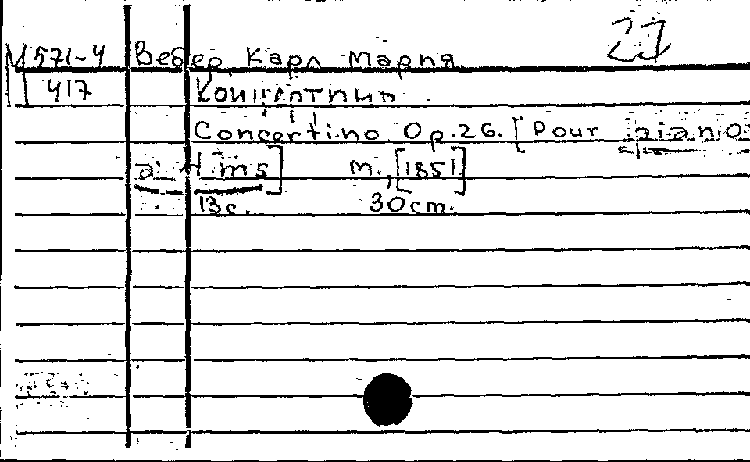 27
М571-4 Вебер, Карл Мария
417 Концертино.
Concertino Op.26. [Pour piano
à 4 ms] м., [1851]
13с. 30cm.